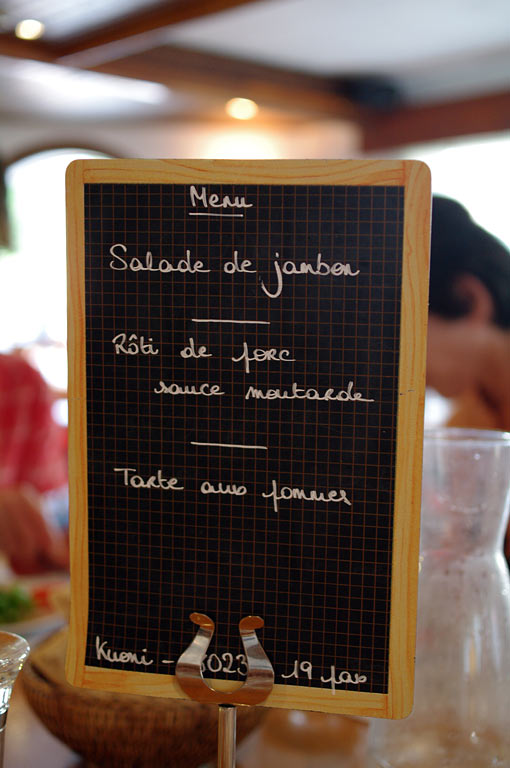 Menu
Salade de jambon
Rôti de porc
sauce moutarde
Tarte aux pommes
Kuoni - 3023 19 pax